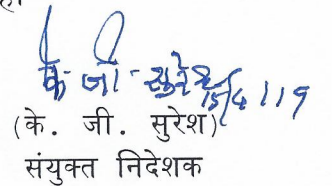 के. जी. सुरेश
15/4/19
(के. जी. सुरेश)
संयुक्त निदेशक